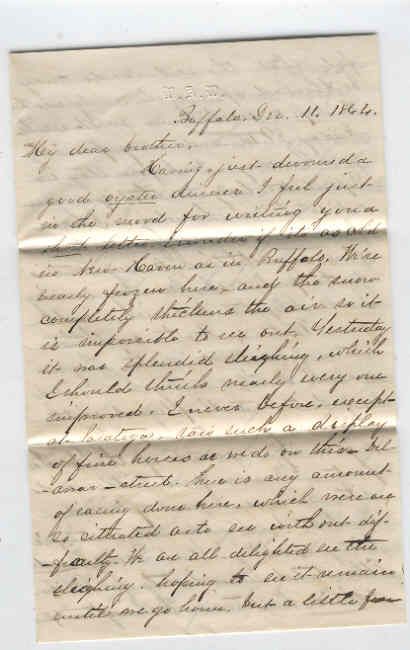 Buffalo, Dec. 11, 1864.
My dear brother,
Having just devoured a
good oyster dinner I feel just
in the mood for writing you a
short letter. I wonder if it is as cold
in New Haven as in Buffalo. We're
nearly frozen here, and the snow
completely thickens the air so it
is impossible to see out. Yesterday
it was splendid sleighing, which
I should think nearly every one
improved. I never before, except
at Saratoga, saw such a display
of fine horses as we do on this Del
-aware-street. There is any amount
of racing done here, which we are
so situated as to see without dif-
ficulty. We are all delighted the
sleighing, hoping to see it remain
until we go home, but a little